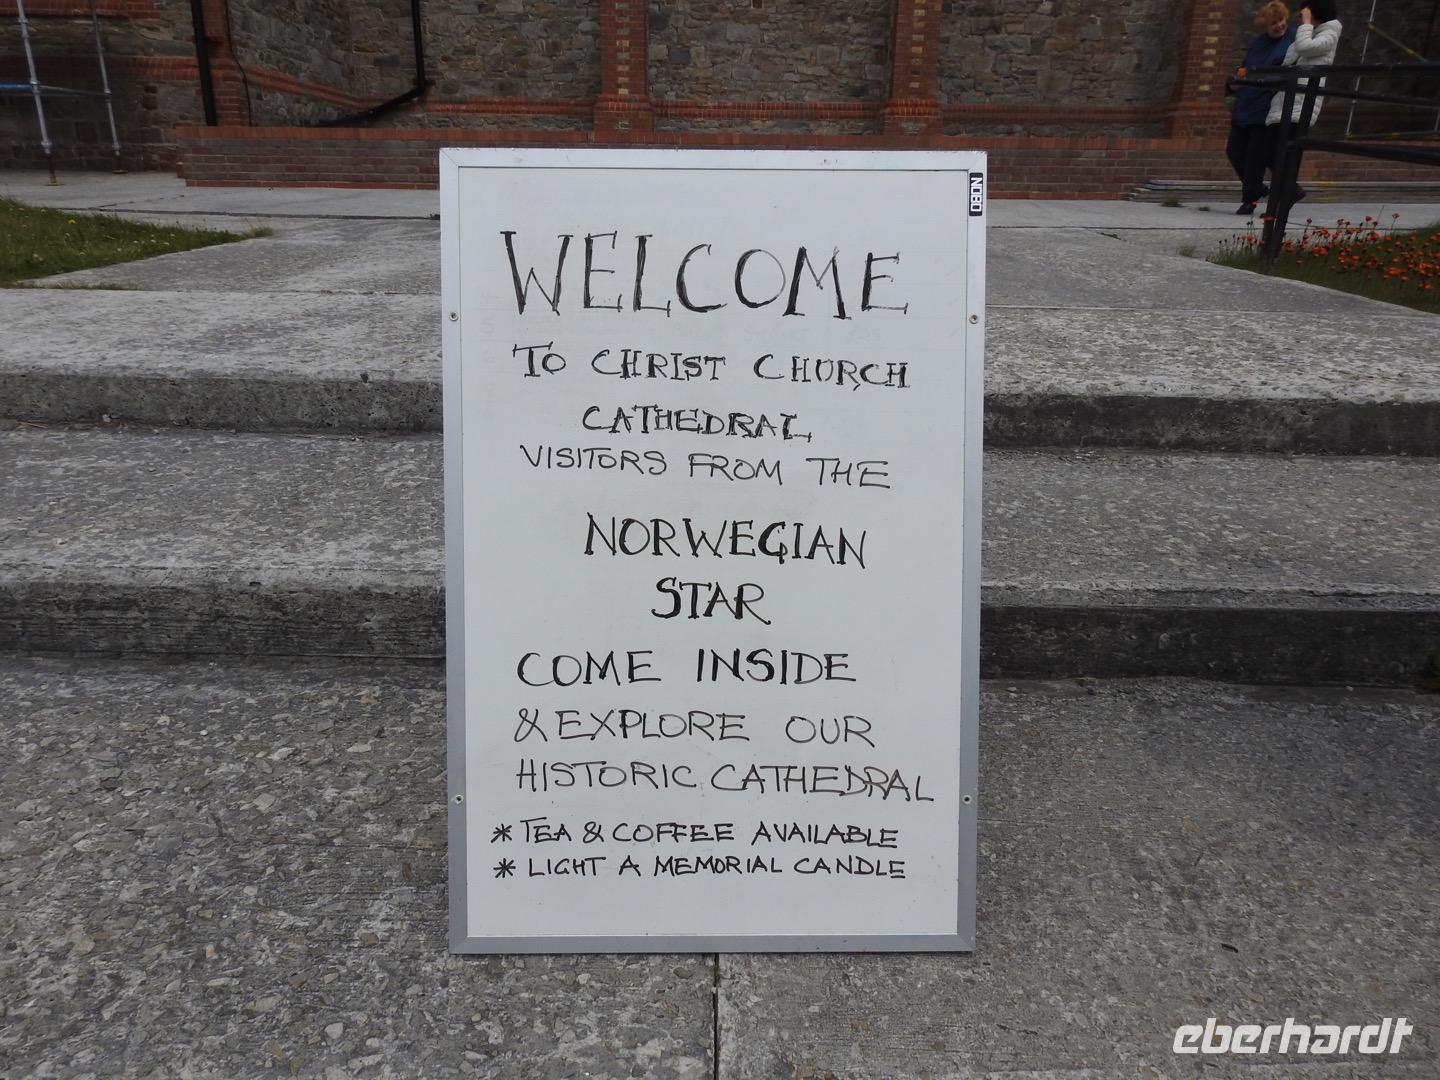 NOBO
WELCOME
TO CHRIST CHURCH
CATHEDRAL
VISITORS FROM THE
NORWEGIAN
STAR
COME INSIDE
& EXPLORE OUR
HISTORIC CATHEDRAL
* TEA & COFFEE AVAILABLE
* LIGHT A MEMORIAL CANDLE
eberhardt